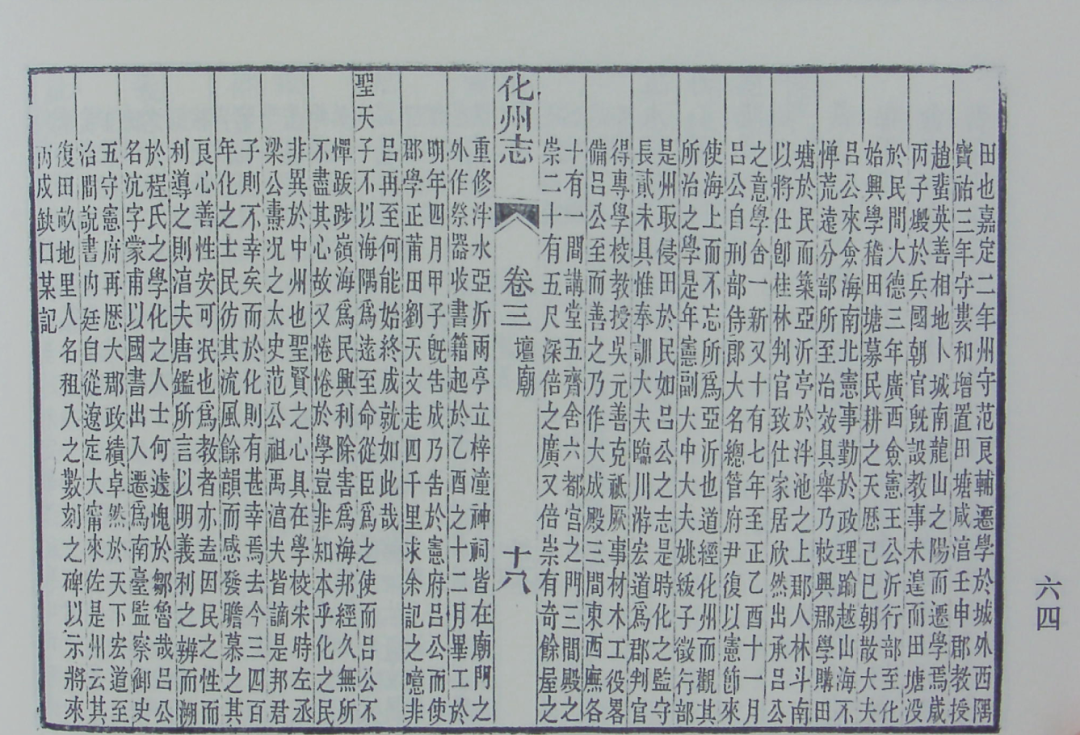 田也嘉定二年州守范良輔遷學於城外西隅
寶祐三年守婁和增置田塘咸淳壬申郡教授
趙蜚英善相地卜城南龍山之陽而遷學焉歲
丙子燬於兵國朝官旣設教事未遑而田塘没
於民間大德三年廣西僉憲王公沂行部至化
始興學稽田塘募民耕之天歷己巳朝散大夫
呂公來僉海南北憲事勤於政理踰越山海不
憚荒遠分部所至治效具舉乃敎興郡學購田
塘於民而築亞沂亭於泮池之上郡人林斗南
以將仕卽桂林判官致仕家居欣然出承呂公
之意學舍一新又十有七年至正乙酉十一月
呂公自刑部侍郎大名總管府尹復以憲節來
使海上而不忘所爲亞沂也道經化州而觀其
所治之學是年憲副大中大夫姚紱子徵行部
是州取侵田於民如呂公之志是時化之監守
長貳未具惟奉訓大夫臨川游宏道爲郡判官
得專學校教授吳元善克祇厥事材木工役畧
備呂公至而善之乃作大成殿三間東西廡各
十有一間講堂五齊舍六都宫之門三間殿之
崇二十有五尺深倍之廣又倍崇有奇餘屋之
化州志
卷三 壇廟
十八
重修泮水亞沂兩亭立梓潼神祠皆在廟門之
外作祭器收書籍起於乙酉之十二月畢工於
明年四月甲子旣告成乃告於憲府呂公而使
郡學正莆田劉天文走四千里求余記之噫非
呂再至何能始終成就如此哉
聖天子不以海隅爲遠至命從臣爲之使而呂公不
憚跋涉嶺海爲民興利除害爲海邦經久無所
不盡其心故又惓惓於學豈非知本乎化之民
非異於中州也聖賢之心具在學校宋時左丞
梁公燾況之太史范公祖禹淳夫皆謫是邦君
子則不幸矣而於化則有甚幸焉去今三四百
年化之士民彷其流風餘韻而感發瞻慕之其
良心善性安可泯也爲教者亦盍因民之性而
利導之則淳夫唐鑑所言以明義利之辨而溯
於程氏之學化之人士何遽愧於鄒魯哉呂公
名沆字蒙甫以國書出入遷爲南臺監察御史
五守憲府再歷大郡政績卓然於天下宏道至
治間說書內廷自從遼定大甯來佐是州云其
復田畝地里人名租入之數刻之碑以示將來
丙戌缺口某記
六四